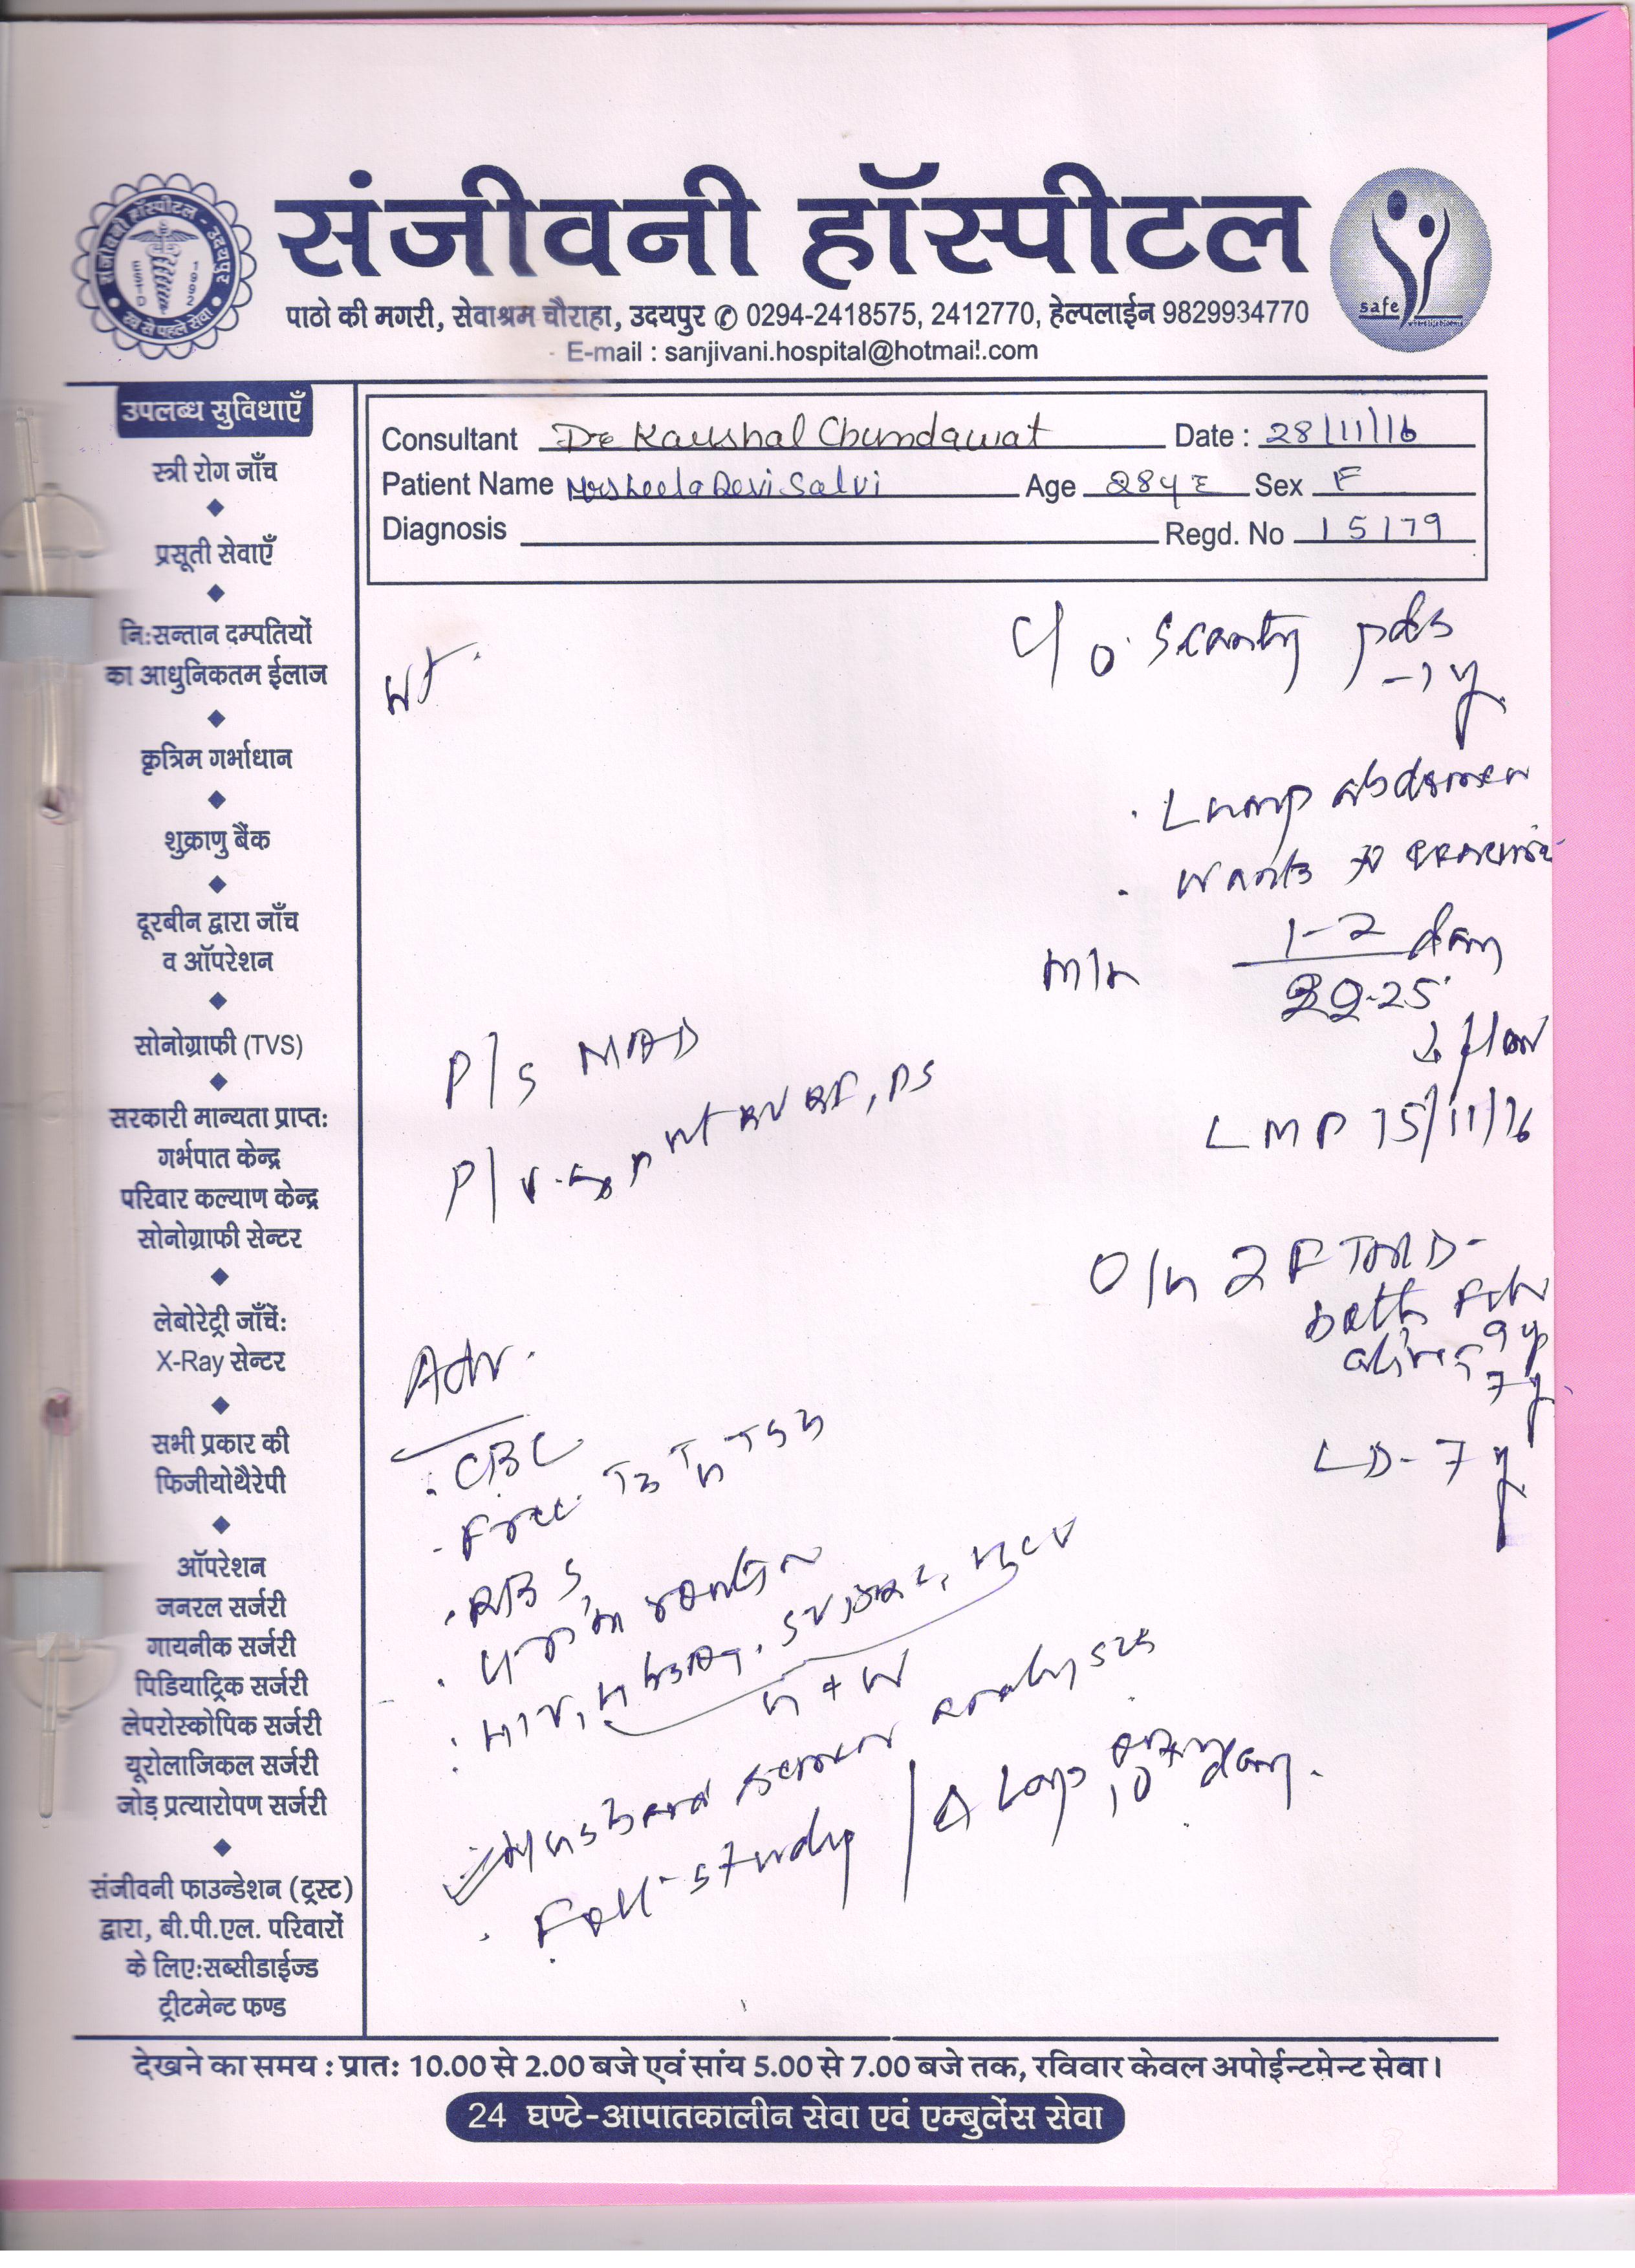 संजीवनी हॉस्पीटल - उदयपुर
ESTD 1992
सब से पहले सेवा
संजीवनी हॉस्पीटल
safe
पाठो की मगरी, सेवाश्रम चौराहा, उदयपुर ✆ 0294-2418575, 2412770, हेल्पलाईन 9829934770
E-mail : sanjivani.hospital@hotmail.com
उपलब्ध सुविधाएँ
स्त्री रोग जाँच
प्रसूती सेवाएँ
नि:सन्तान दम्पतियों
का आधुनिकतम ईलाज
कृत्रिम गर्भाधान
शुक्राणु बैंक
दूरबीन द्वारा जाँच
व ऑपरेशन
सोनोग्राफी (TVS)
सरकारी मान्यता प्राप्त:
गर्भपात केन्द्र
परिवार कल्याण केन्द्र
सोनोग्राफी सेन्टर
लेबोरेट्री जाँचें:
X-Ray सेन्टर
सभी प्रकार की
फिजीयोथैरेपी
ऑपरेशन
जनरल सर्जरी
गायनीक सर्जरी
पिडियाट्रिक सर्जरी
लेपरोस्कोपिक सर्जरी
यूरोलाजिकल सर्जरी
जोड़ प्रत्यारोपण सर्जरी
संजीवनी फाउन्डेशन (ट्रस्ट)
द्वारा, बी.पी.एल. परिवारों
के लिए:सब्सीडाईज्ड
ट्रीटमेन्ट फण्ड
Consultant Dr Kaushal Chundawat Date : 28/11/16
Patient Name Mrs heela Devi Salvi Age 28yr Sex F
Diagnosis Regd. No 15179
C/o Scanty pds
-1y
Wt.
. Lump abdomen
. Wants to
M/H 1-2 day
-25
↓ flow
LMP 15/11/16
P/s NAD
P/v
O/H 2 FTND-
both FCH
alive, 9y
7y
LD- 7y
Adv.
. CBC
. Free T3 T4 TSH
. RBS
. Urine routine
. HIV, HBsAg, HCV
H+W
Husband semen analysis
. Foll-study / 10th day.
देखने का समय : प्रात: 10.00 से 2.00 बजे एवं सांय 5.00 से 7.00 बजे तक, रविवार केवल अपोईन्टमेन्ट सेवा।
24 घण्टे-आपातकालीन सेवा एवं एम्बुलेंस सेवा